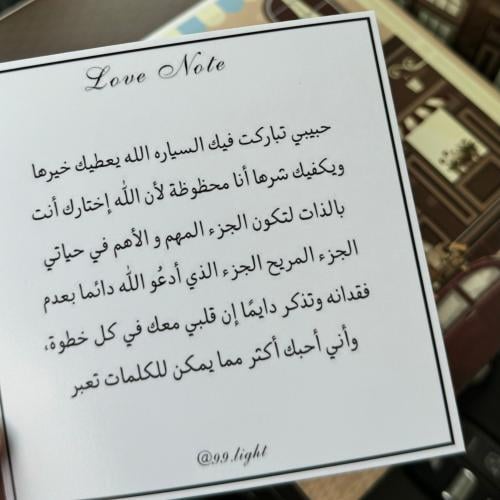 Love Note
حبيبي تباركت فيك السياره الله يعطيك خيرها
ويكفيك شرها أنا محظوظة لأن الله إختارك أنت
بالذات لتكون الجزء المهم و الأهم في حياتي
الجزء المريح الجزء الذي أدعُو الله دائما بعدم
فقدانه وتذكر دايمًا إن قلبي معك في كل خطوة،
وأني أحبك أكثر مما يمكن للكلمات تعبر
@99.light